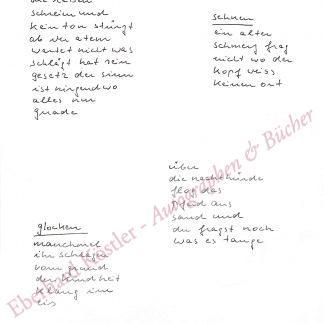 schreien und
kein ton stürzt
ab der atem
wartet nicht was
schlägt hat sein
gesetz der sinn
ist nirgendwo
alles nur
gnade
sehnen
ein alter
schmerz frag
nicht wo der
kopf weiss
keinen ort
über
die nachthürde
flog das
pferd aus
sand und
du fragst noch
was es tauge
glocken
manchmal
ihr schlagen
vom grund
der kindheit
klang im
eis
Eberhard Köstler - Autographen & Bücher